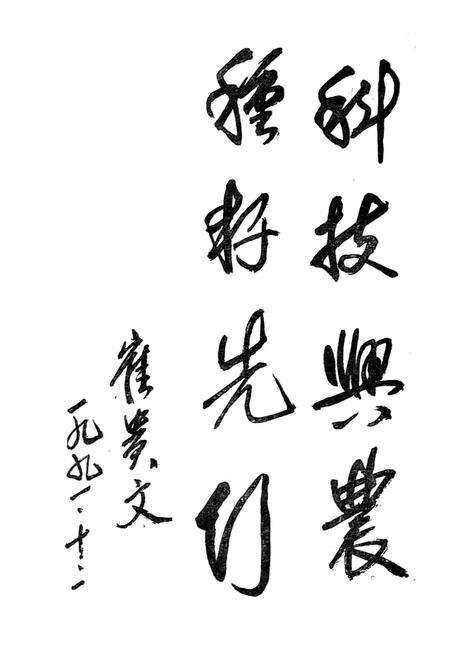 科技興農
種籽先行
崔贵文
一九九一·十·一